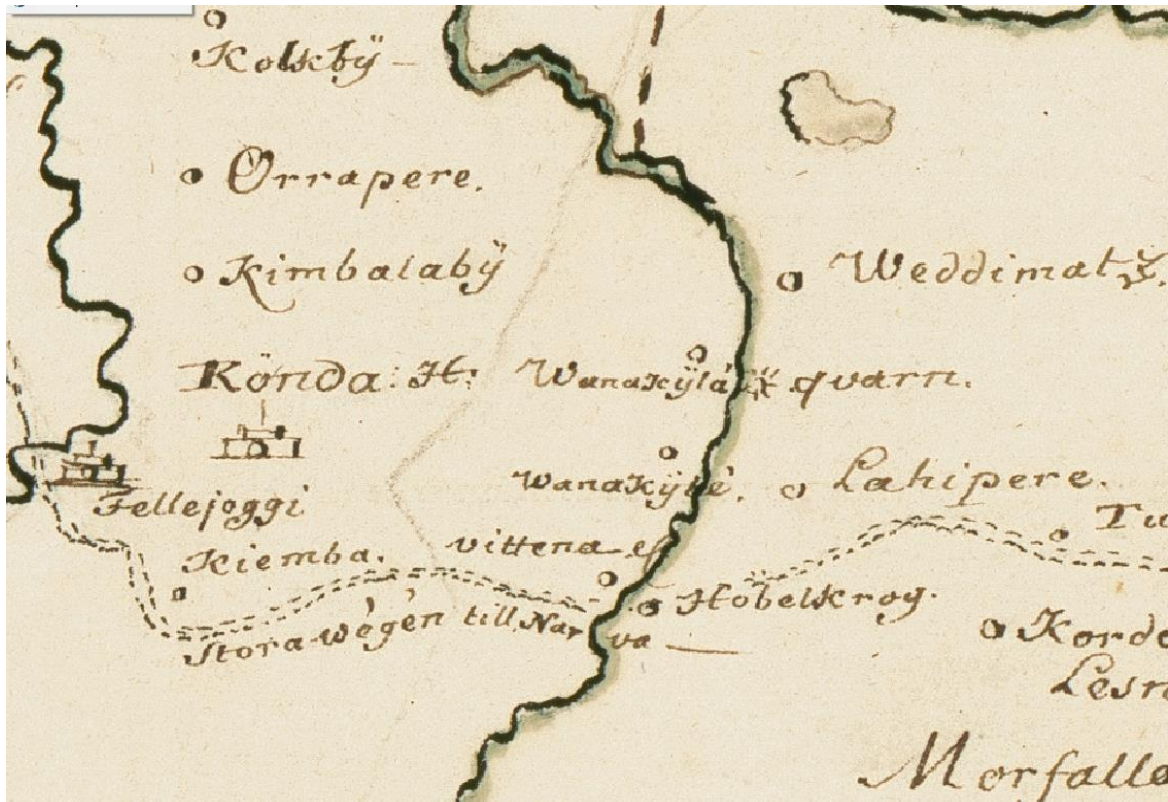 Kolkbÿ
Orrapere.
Kimbalabÿ
Weddimat
Könda: H:
Wanakÿlä qvarn.
Wanakÿlé.
Lahipere.
Fellejoggi
Tu
Kiemba.
vittena
Hobelkrog.
Stora wégén till Narva
Korde
Lesn
Morfalle